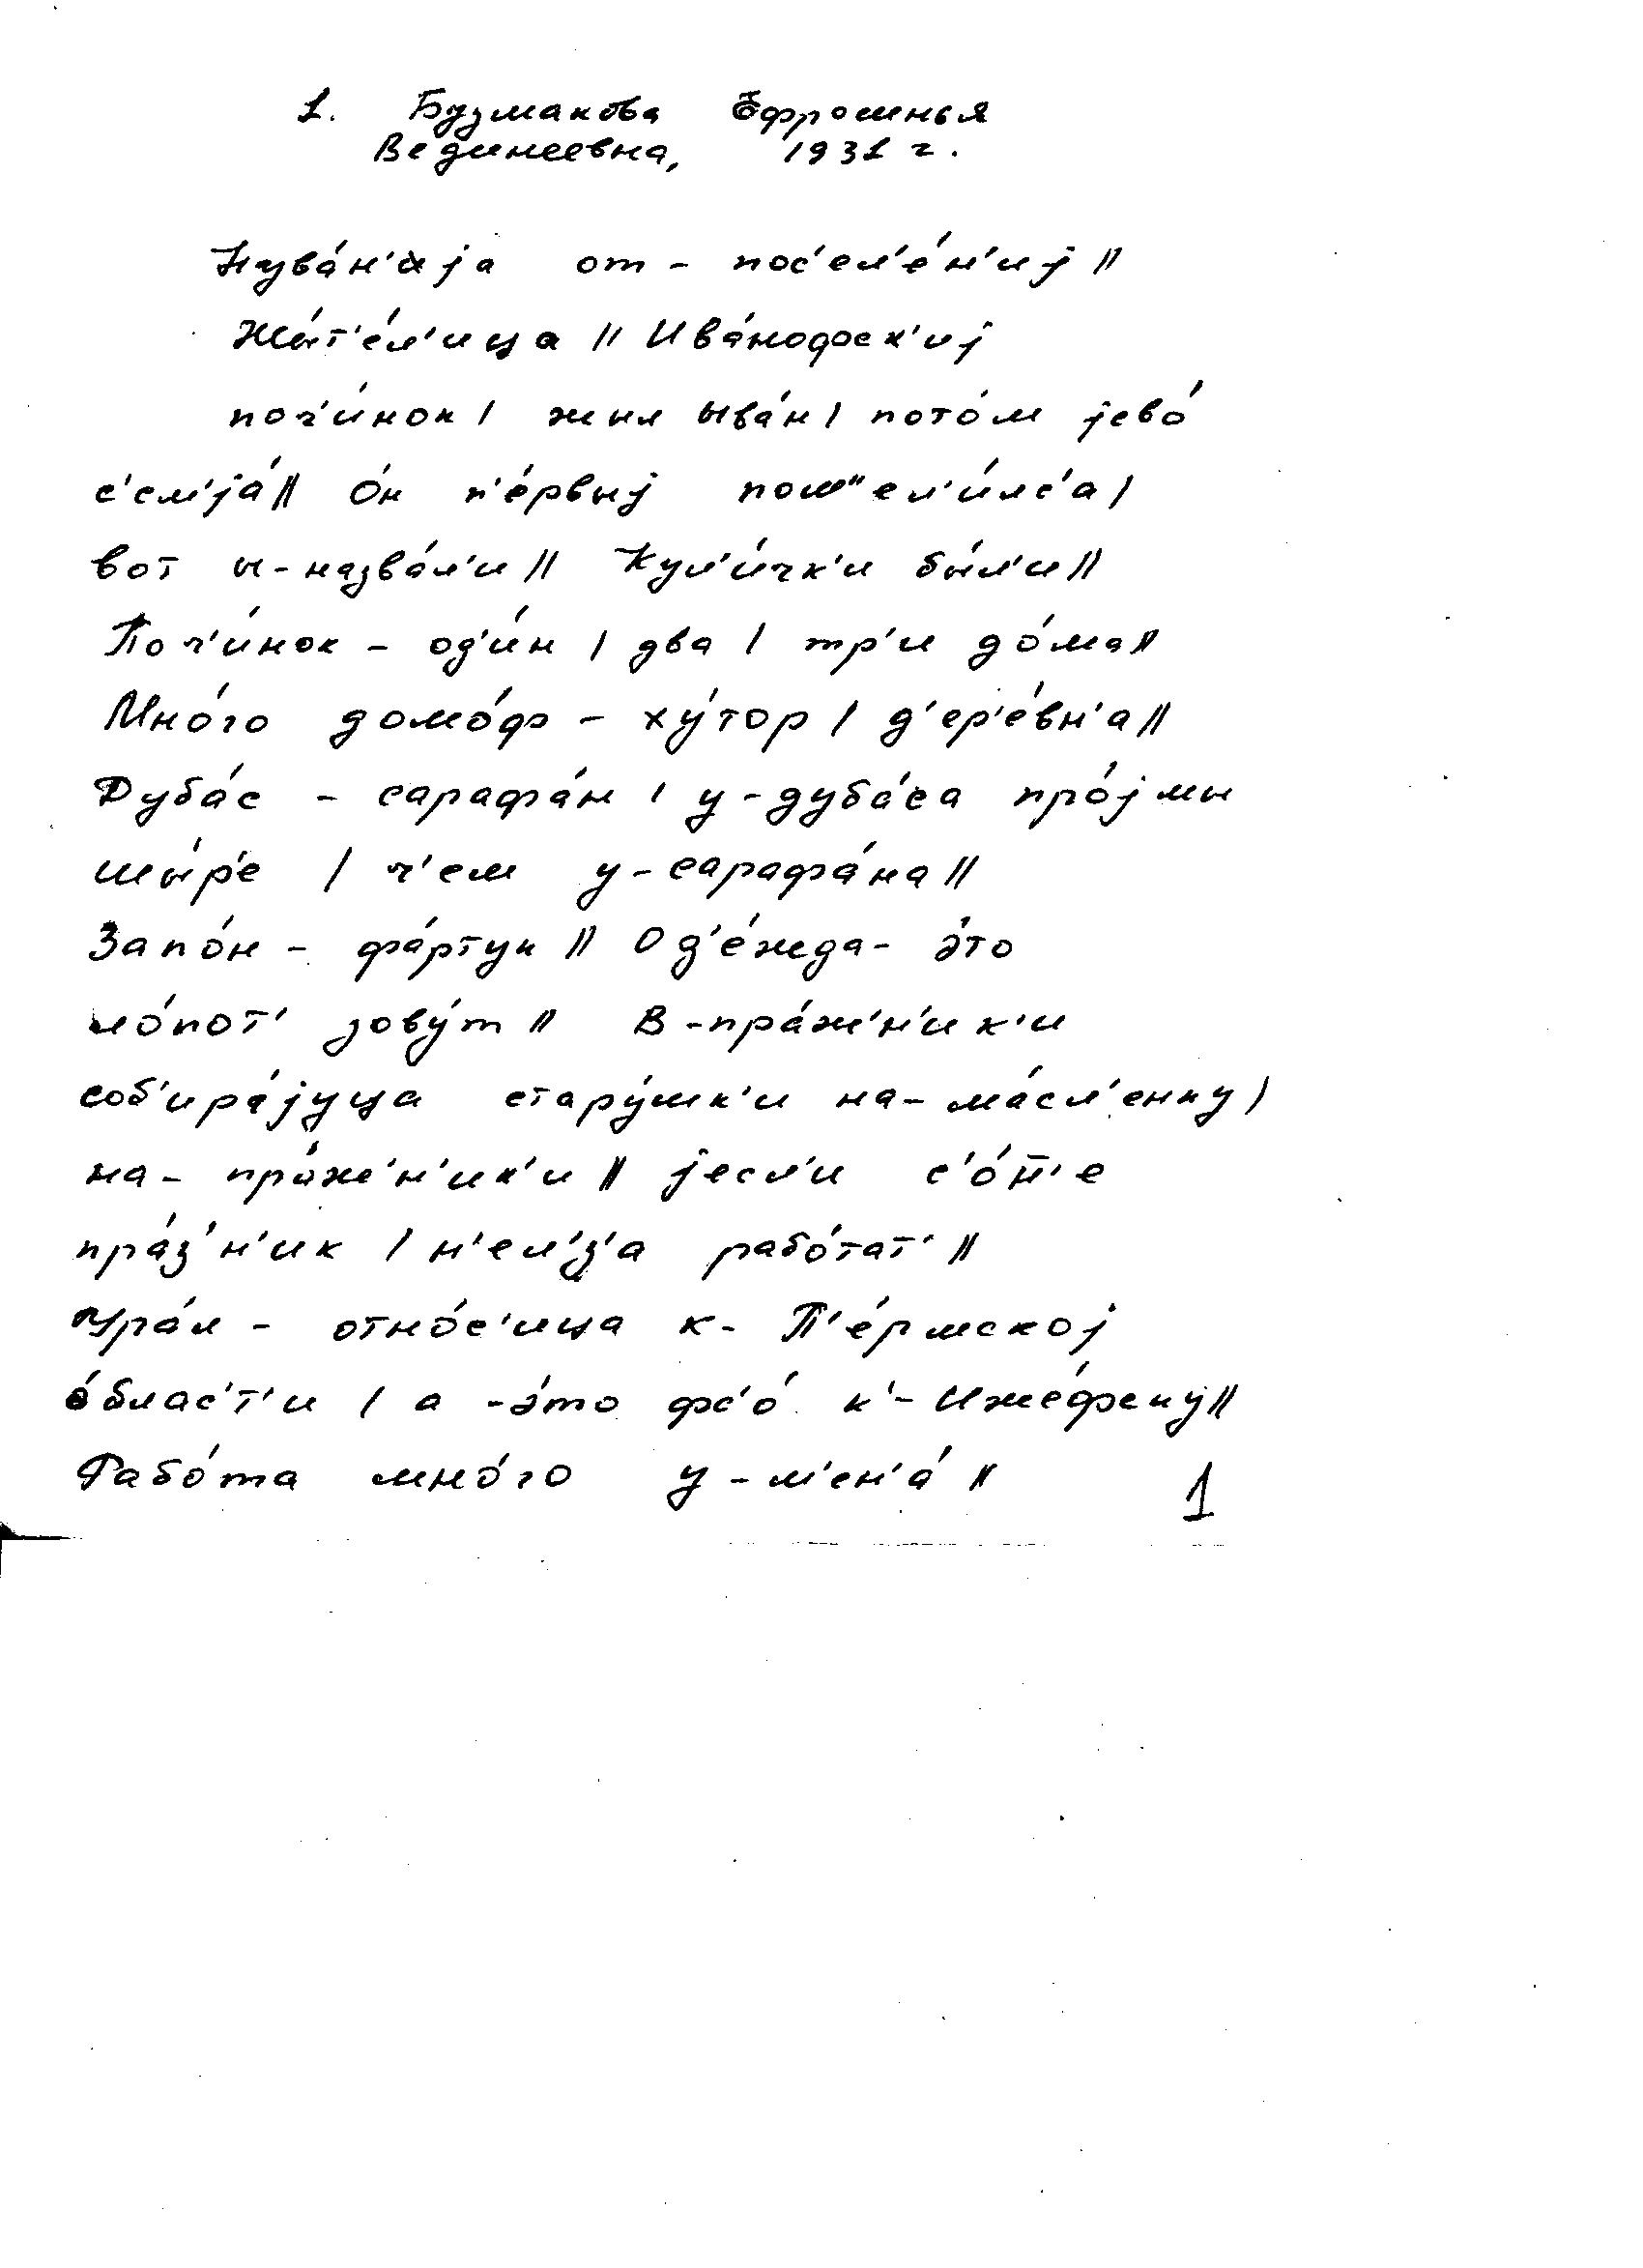 1. Бузмакова Ефрошинья
Вединеевна, 1931 г.
от - пос'ел'е́н'иј ||
Жы́т'е́л'ица || Ива́нофск'иј
поч'и́нок | жыл ыва́н | пото́м јево́
с'ем'ја́ || О́н п'е́рвыј пош"ел'и́лс'а |
вот ы-назва́л'и || Кул'и́чк'и бы́л'и ||
Поч'и́нок - од'и́н | два | тр'и до́ма ||
Мно́го домо́ф - ху́тор | д'ер'е́вн'а ||
Дуба́с - сарафа́н | у-дуба́са про́јмы
шы́р'е | ч'ем у-сарафа́на ||
Запо́н - фа́ртук || Од'е́жда - э́то
ло́пот' зову́т || В-пра́ж'н'ик'и
соб'ира́јуца стару́шк'и на-ма́сл'енку |
на-пра́ж'н'ик'и || јесл'и с'о́т'е
пра́з'н'ик | н'ел'з'а рабо́тат' ||
Ура́л - отно́с'ица к- П'е́рмској
о́блас'т'и | а -э́то фс'о́ к'- Иже́фску ||
Рабо́та мно́го у-м'ен'а́ ||
1